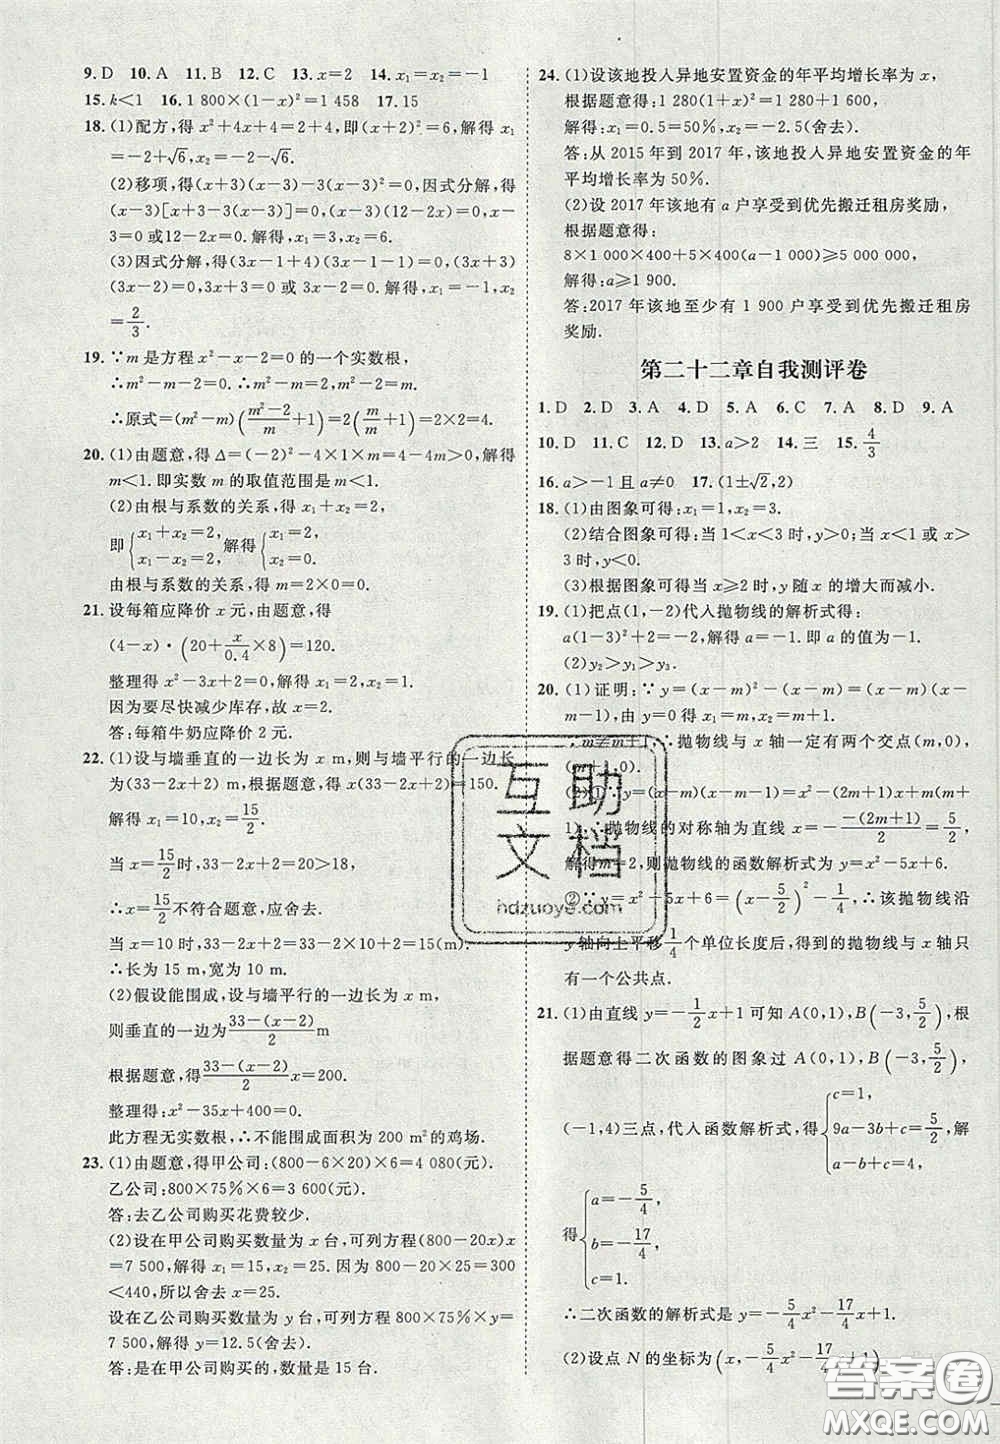 9. D　10. A　11. B　12. C　13. x=2　14. x₁=x₂=-1
15. k<1　16. 1 800×(1-x)²=1 458　17. 15
18. (1)配方,得 x²+4x+4=2+4,即(x+2)²=6,解得 x₁
=-2+√6,x₂=-2-√6.
(2)移项,得(x+3)(x-3)-3(x-3)²=0,因式分解,得
(x-3)[x+3-3(x-3)]=0,(x-3)(12-2x)=0,x-
3=0 或12-2x=0.解得,x₁=3,x₂=6.
(3)因式分解,得(3x-1+4)(3x-1-1)=0,(3x+3)
(3x-2)=0,3x+3=0 或 3x-2=0.解得,x₁=-1,x₂
=2/3.
19. ∵m 是方程 x²-x-2=0 的一个实数根,
∴m²-m-2=0.∴m²-m=2,m²-2=m.
∴原式=(m²-m)((m²-2)/m+1)=2(m/m+1)=4.
20. (1)由题意,得 Δ=(-2)²-4×1×m=4-4m>0,解得
m<1.即实数 m 的取值范围是 m<1.
(2)由根与系数的关系,得 x₁+x₂=2,
即{x₁+x₂=2, x₁-x₂=2,解得{x₁=2, x₂=0.
由根与系数的关系,得 m=2×0=0.
21. 设每箱应降价 x 元,由题意,得
(4-x)·(20+x/0.4×8)=120.
整理得 x²-3x+2=0.解得 x₁=1,x₂=2.
因为要尽快减少库存,故 x=2.
答:每箱牛奶应降价 2 元.
22. (1)设与墙垂直的一边长为 x m,则与墙平行的一边长
为(33-2x+2) m,根据题意,得 x(33-2x+2)=150.
解得 x₁=10,x₂=15/2.
当 x=15/2时,33-2x+2=20>18,
∴x=15/2不符合题意,应舍去.
当 x=10 时,33-2x+2=33-20+2=15(m).
∴长为 15 m,宽为 10 m.
(2)假设能围成,设与墙平行的一边长为 x m,
则垂直的一边为(33-(x-2))/2 m
根据题意,得(33-(x-2))/2 x=200.
整理得:x²-35x+400=0.
此方程无实数根,∴不能围成面积为 200 m²的鸡场.
23. (1)由题意,得甲公司:(800-6×20)×6=4 080(元).
乙公司:800×75%×6=3 600(元).
答:去乙公司购买花费较少.
(2)设在甲公司购买数量为 x 台,可列方程(800-20x)x
=7 500,解得 x₁=15,x₂=25.当 x=25 时,每台 300 元
<440,所以舍去 x=25.
设在乙公司购买数量为 y 台,可列方程 800×75%×y=
7 500,解得 y=12.5(舍去).
答:是在甲公司购买的,数量是 15 台.
24. (1)设该地投入异地安置资金的年平均增长率为 x,
根据题意得:1 280(1+x)²=1 280+1 600,
解得:x₁=0.5=50%,x₂=-2.5(舍去).
答:从 2015 年到 2017 年,该地投入异地安置资金的年
平均增长率为 50%.
(2)设 2017 年该地有 a 户享受到优先搬迁租房奖励,
根据题意得:
8×1 000×400+5×400(a-1 000)≥5 000 000,
解得:a≥1 900.
答:2017 年该地至少有 1 900 户享受到优先搬迁租房
奖励.
第二十二章自我测评卷
1. D　2. D　3. A　4. D　5. A　6. C　7. A　8. D　9. A
10. D　11. C　12. D　13. a>2　14. 三　15. 4/3
16. a>-1 且 a≠0　17. (1±√2,2)
18. (1)由图象可得:x₁=1,x₂=3.
(2)结合图象可得:当 1<x<3 时,y>0;当 x<1 或 x>
3 时,y<0.
(3)根据图象可得当 x≥2 时,y 随 x 的增大而减小.
19. (1)把点(1,-2)代入抛物线的解析式得:
a(1-3)²+2=-2.解得 a=-1.即 a 的值为-1.
(2)y₂>y₁>y₃.
20. (1)证明:∵y=(x-m)²-(x-m)=(x-m)(x-m-
1),由 y=0 得 x₁=m,x₂=m+1.
∵m≠m+1,∴抛物线与 x 轴一定有两个交点(m,0),
(m+1,0).
(2)①∵y=(x-m)²-(x-m)=x²-(2m+1)x+m(m+
1),∴抛物线的对称轴为直线 x=-(-(2m+1))/2=5/2,
解得 m=2,则抛物线的函数解析式为 y=x²-5x+6.
②∵y=x²-5x+6=(x-5/2)²-1/4,∴该抛物线沿
y 轴向上平移1/4个单位长度后,得到的抛物线与 x 轴只
有一个公共点.
21. (1)由直线 y=-1/2x+1 可知 A(0,1),B(-3,5/2),根
据题意得二次函数的图象过 A(0,1),B(-3,5/2),
(-1,4)三点,代入函数解析式,得{c=1, 9a-3b+c=5/2, a-b+c=4,解
得{a=-5/4, b=-17/4, c=1.
∴二次函数的解析式是 y=-5/4x²-17/4x+1.
(2)设点 N 的坐标为(x,-5/4x²-17/4x+1)
互助
文档
hdzuoye.com
答案圈
MXQE.COM